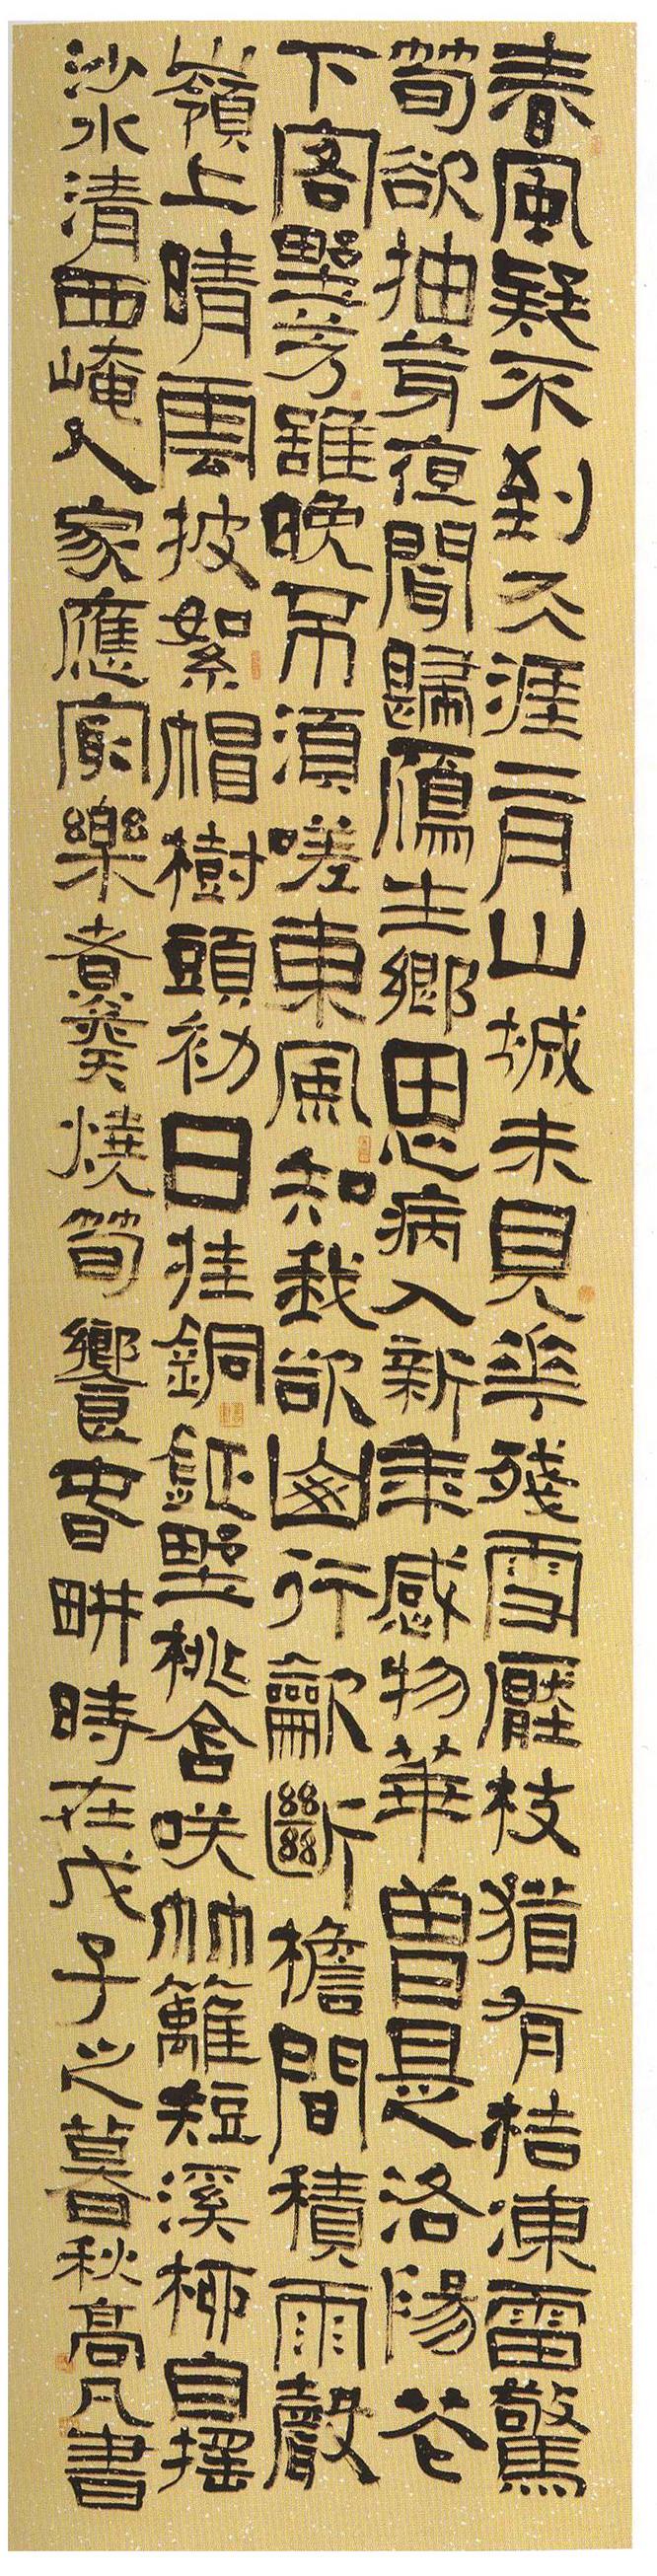 春風疑不到天涯二月山城未見華殘雪壓枝猶有桔凍雷驚
筍欲抽芽夜聞歸鴈生鄉思病入新年感物華曾是洛陽花
下客野芳雖晚不須嗟東風知我欲山行歙斷檐間積雨聲
嶺上晴雲披絮帽樹頭初日挂銅鉦野桃含咲竹籬短溪柳自搖
沙水清西崦人家應最樂煮芹燒筍饗春耕時在戊子之暮秋高凡書